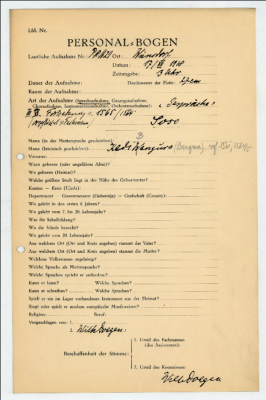 Lfd. Nr.
PERSONAL-BOGEN
Lautliche Aufnahme Nr. Ort:
Datum:
Zeitangabe: 3 Uhr
Dauer der Aufnahme: Durchmesser der Platte:
Raum der Aufnahme:
Art der Aufnahme (Sprechaufnahme, Gesangsaufnahme,
Choraufnahme, Instrumentenaufnahme, Orchesteraufnahme)
Soso
3
Name (in der Muttersprache geschrieben):
Name (lateinisch geschrieben):
Vorname:
Wann geboren (oder ungefähres Alter)?
Wo geboren (Heimat)?
Welche größere Stadt liegt in der Nähe des Geburtsortes?
Kanton — Kreis (Ujedz):
Department — Gouvernement (Gubernija) — Grafschaft (County):
Wo gelebt in den ersten 6 Jahren?
Wo gelebt vom 7. bis 20. Lebensjahr?
Was für Schulbildung?
Wo die Schule besucht?
Wo gelebt vom 20. Lebensjahr?
Aus welchem Ort (Ort und Kreis angeben) stammt der Vater?
Aus welchem Ort (Ort und Kreis angeben) stammt die Mutter?
Welchem Volksstamm angehörig?
Welche Sprache als Muttersprache?
Welche Sprachen spricht er außerdem?
Kann er lesen? Welche Sprachen?
Kann er schreiben? Welche Sprachen?
Spielt er ein im Lager vorhandenes Instrument aus der Heimat?
Singt oder spielt er modern europäische Musikweisen?
Religion: Beruf:
Vorgeschlagen von: 1.
2. Wilh. Doegen
Beschaffenheit der Stimme:
1. Urteil des Fachmannes
(des Assistenten):
2. Urteil des Kommissars:
Wilh. Doegen